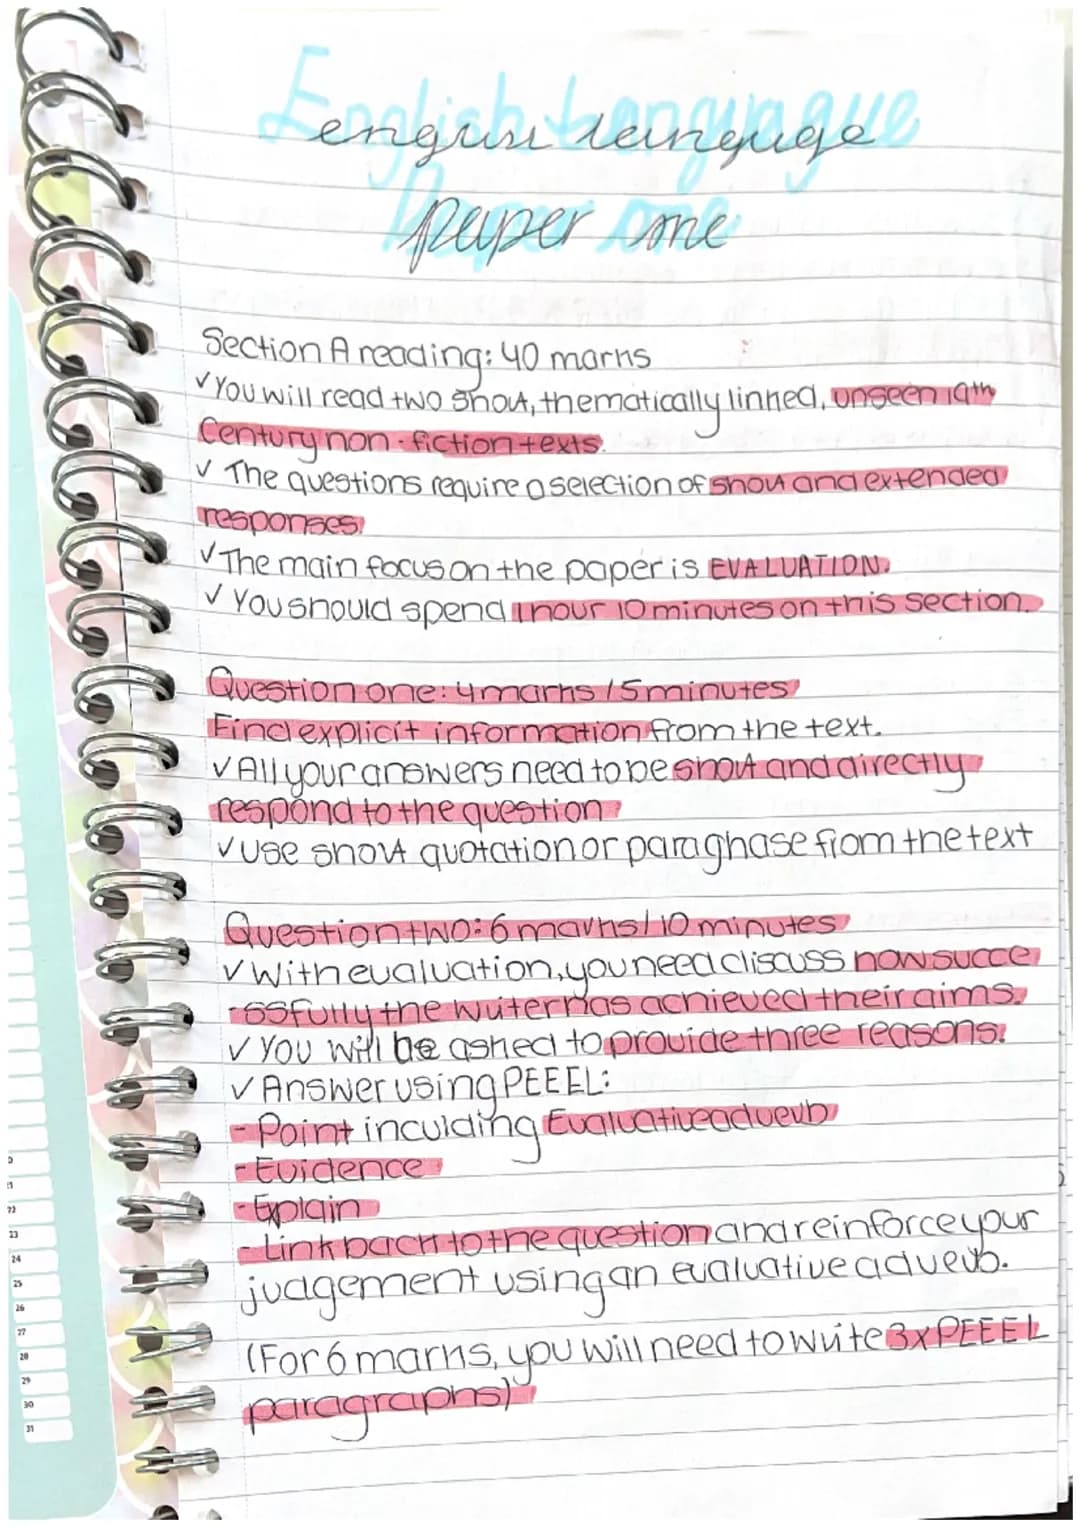 English Language
english language
Paper one
paper one
Section A reading: 40 marks
✓ You will read two short, thematically linked, unseen 19th
Century non-fiction texts.
✓ The questions require a selection of short and extended
responses.
✓ The main focus on the paper is EVALUATION.
✓ You should spend 1 hour 10 minutes on this section.
Question one: 4 marks / 5 minutes
Find explicit information from the text.
✓ All your answers need to be short and directly
respond to the question
✓ Use short quotation or paraghase from the text
Question two: 6 marks / 10 minutes
✓ With evaluation, you need discuss how succe
-ssfully the writer has achieved their aims.
✓ You will be asked to provide three reasons.
✓ Answer using PEEEL:
- Point inculding Evaluative adverb
- Evidence
- Explain
- Link back to the question and reinforce your
judgement using an evaluative adverb.
(For 6 marks, you will need to write 3x PEEEL
paragraphs)
22
23
24
25
26
27
28
29
30
31